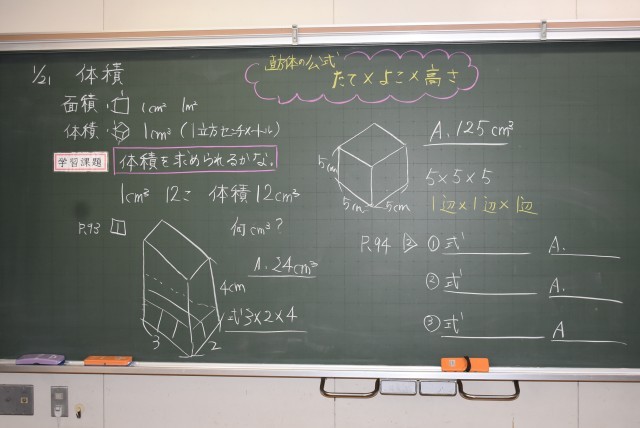 1/21 体積
面積 1cm² 1m²
体積 1cm³ (1立方センチメートル)
学習課題 体積を求められるかな。
1cm³ 12こ 体積12cm³
P.93 1
何cm³?
A. 24cm³
式 3×2×4
4cm
3
2
直方体の公式
たて×よこ×高さ
5cm
5cm
5cm
A. 125cm³
5×5×5
1辺×1辺×1辺
P.94 2 ①式 A.
②式 A.
③式 A